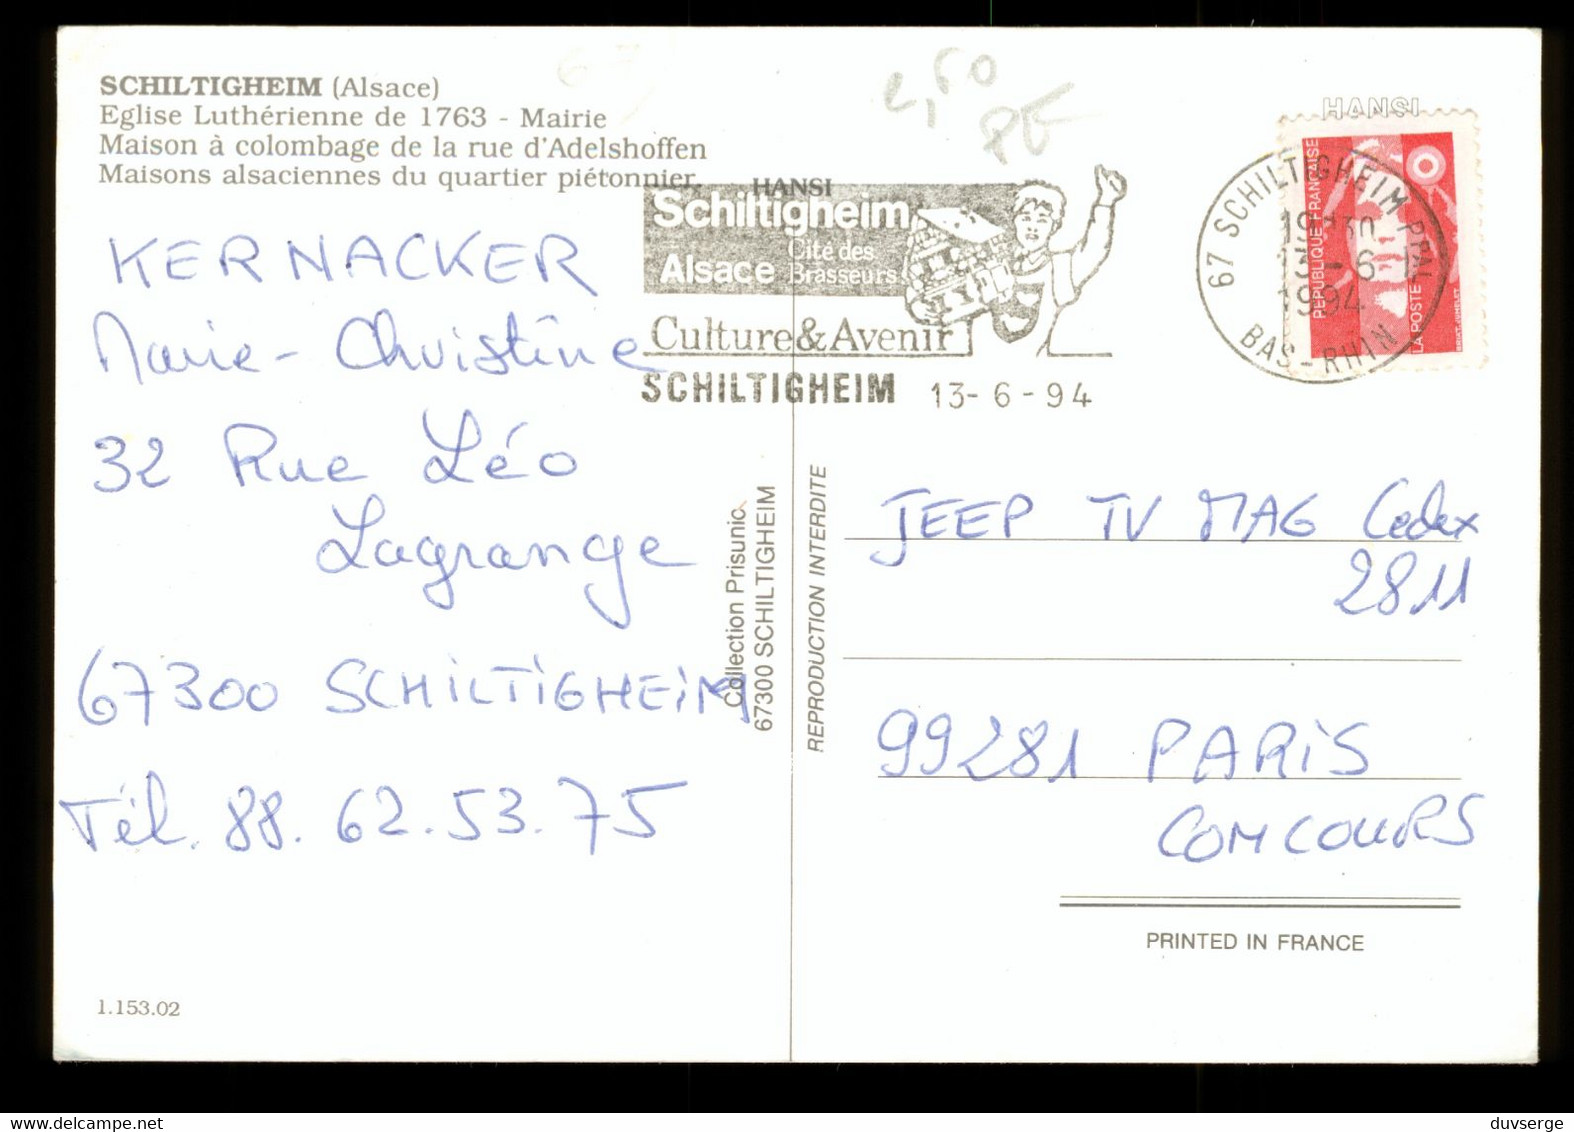 SCHILTIGHEIM (Alsace)
Eglise Luthérienne de 1763 - Mairie
Maison à colombage de la rue d'Adelshoffen
Maisons alsaciennes du quartier piétonnier.
HANSI
Schiltigheim
Alsace
Cité des
Brasseurs
Culture & Avenir
SCHILTIGHEIM 13-6-94
HANSI
67 SCHILTIGHEIM PPAL
13-6
1994
BAS-RHIN
REPUBLIQUE FRANÇAISE
LA POSTE
KERNACKER
Marie-Christine
32 Rue Léo
Lagrange
67300 SCHILTIGHEIM
Tél. 88.62.53.75
Collection Prisunic
67300 SCHILTIGHEIM
REPRODUCTION INTERDITE
JEEP TV MAG Cedex
2811
99281 PARIS
CONCOURS
PRINTED IN FRANCE
1.153.02
duvserge